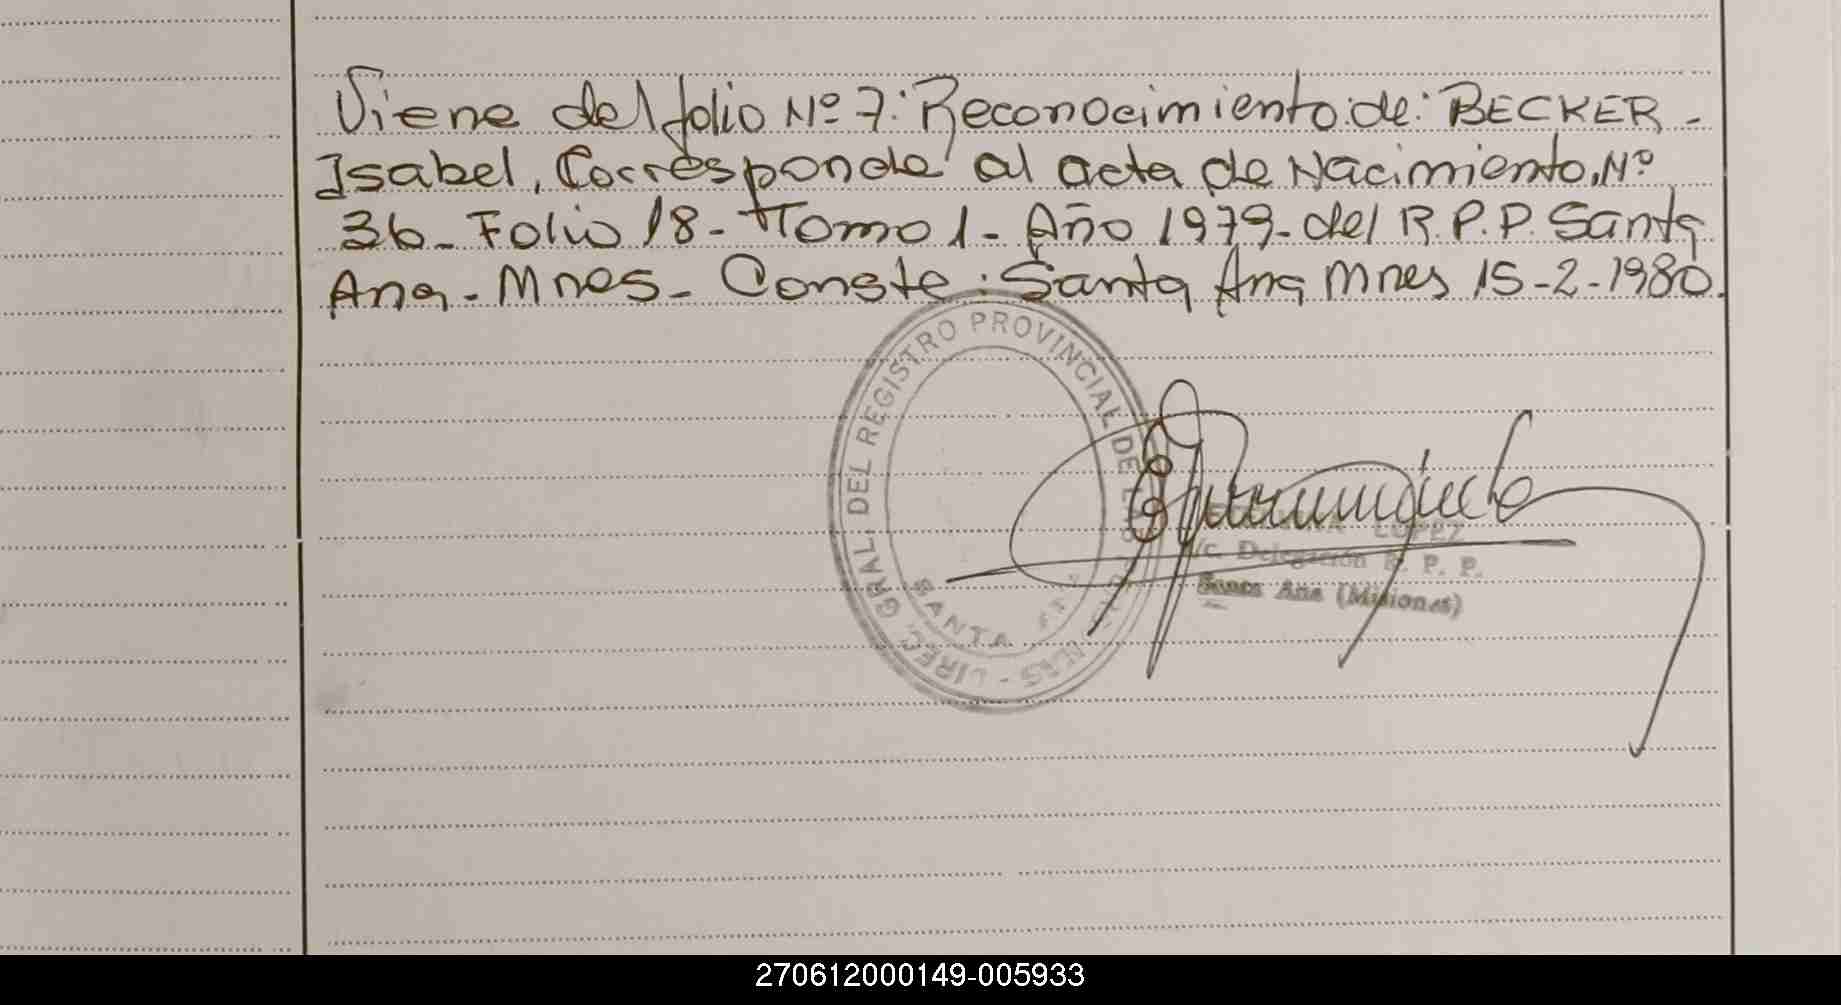 Viene del folio Nº 7: Reconocimiento de: BECKER -
Isabel, Corresponde al acta de Nacimiento, Nº
36- Folio 18- Tomo 1- Año 1979- del R.P.P. Santa
Ana - Mnes - Conste: Santa Ana Mnes 15-2-1980.
DIREC. GRAL. DEL REGISTRO PROVINCIAL DE LAS
SANTA
LOPEZ
/c. Delegación R. P. P.
Santa Ana (Misiones)
270612000149-005933